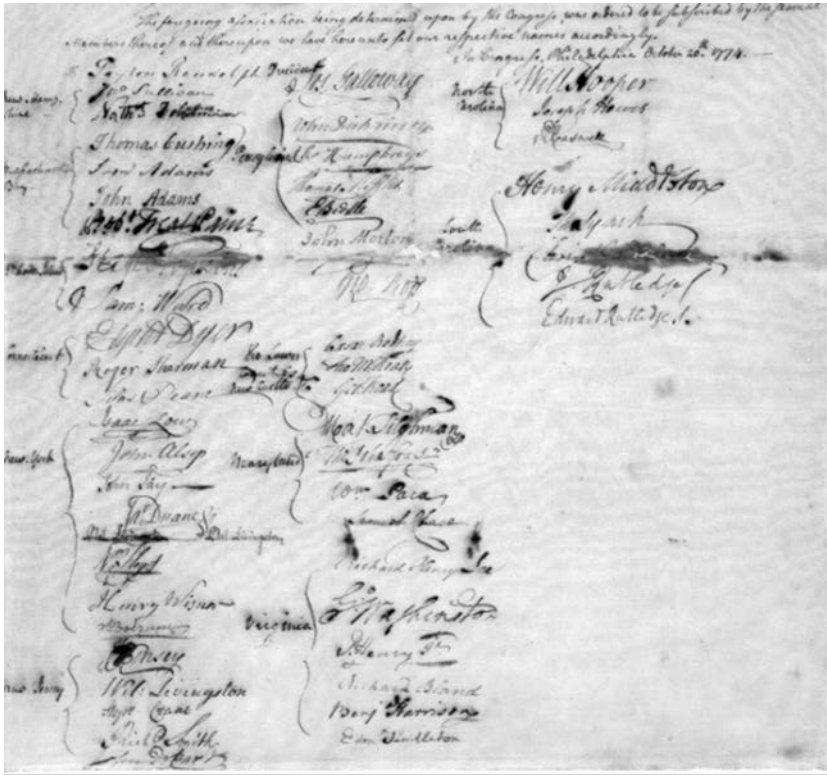 The foregoing association being determined upon by the Congress, was ordered to be subscribed by the several
Members thereof and thereupon we have hereunto set our respective names accordingly.
In Congress, Philadelphia October 20th. 1774.
Peyton Randolph President
New Hamp-
shire
Jno. Sullivan
Nathl. Folsom
Massachusetts
Bay
Thomas Cushing
Saml Adams
John Adams
Robt. Treat Paine
Step Hopkins
Sam: Ward
Connecticut
Elipht Dyer
Roger Sherman
Silas Deane
New-York
Isaac Low
John Alsop
John Jay
Jas. Duane
Phil. Livingston
Wm Floyd
Henry Wisner
S: Boerum
New Jersey
J. Kinsey
Wil: Livingston
Stepn Crane
Richd. Smith
John De Hart
Pensylvania
Jos Galloway
John Dickinson
Cha Humphreys
Thomas Mifflin
E Biddle
John Morton
Geo: Ross
The Lower
Counties
New Castle
Caesar Rodney
Tho M:Kean
Geo: Read
Maryland
Mat Tilghman
Ths Johnson Junr
Wm. Paca
Samuel Chase
Virginia
Richard Henry Lee
Go Washington
P. Henry Jr.
Richard Bland
Benj. Harrison
Edmd. Pendleton
North
Carolina
Will Hooper
Joseph Hewes
R Caswell
South
Carolina
Henry Middleton
Tho Lynch
Christ Gadsden
J Rutledge
Edward Rutledge